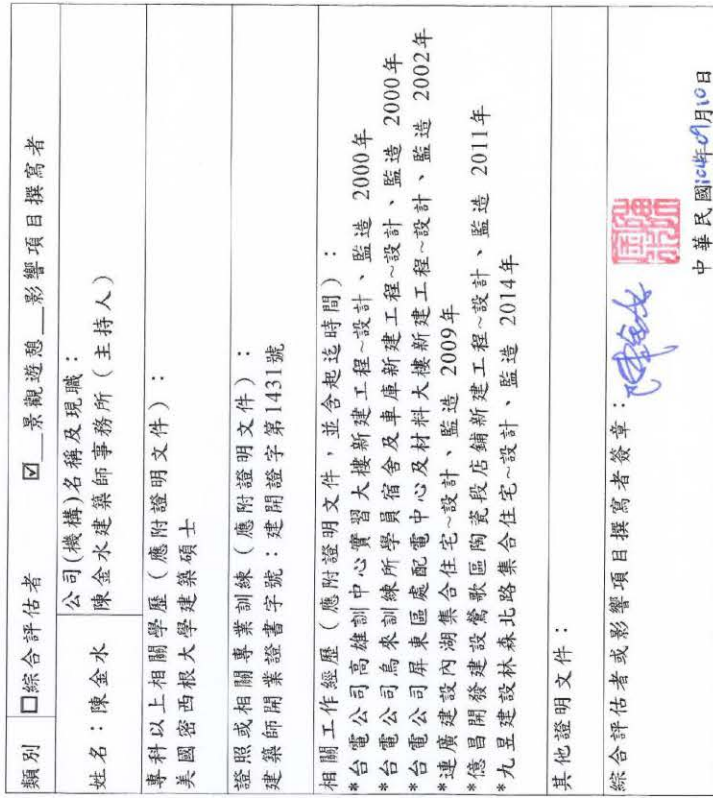 類別 □綜合評估者 ☑__景觀遊憩__影響項目撰寫者
姓名：陳金水
公司(機構)名稱及現職：
陳金水建築師事務所（主持人）
專科以上相關學歷（應附證明文件）：
美國密西根大學建築碩士
證照或相關專業訓練（應附證明文件）：
建築師開業證書字號：建開證字第1431號
相關工作經歷（應附證明文件，並含起迄時間）：
*台電公司高雄訓中心實習大樓新建工程~設計、監造 2000年
*台電公司烏來訓練所學員宿舍及車庫新建工程~設計、監造 2000年
*台電公司屏東區處配電中心及材料大樓新建工程~設計、監造 2002年
*連廣建設內湖集合住宅~設計、監造 2009年
*億昌開發建設鶯歌區陶瓷段店鋪新建工程~設計、監造 2011年
*九昱建設林森北路集合住宅~設計、監造 2014年
其他證明文件：
綜合評估者或影響項目撰寫者簽章：陳金水
中華民國104年09月10日